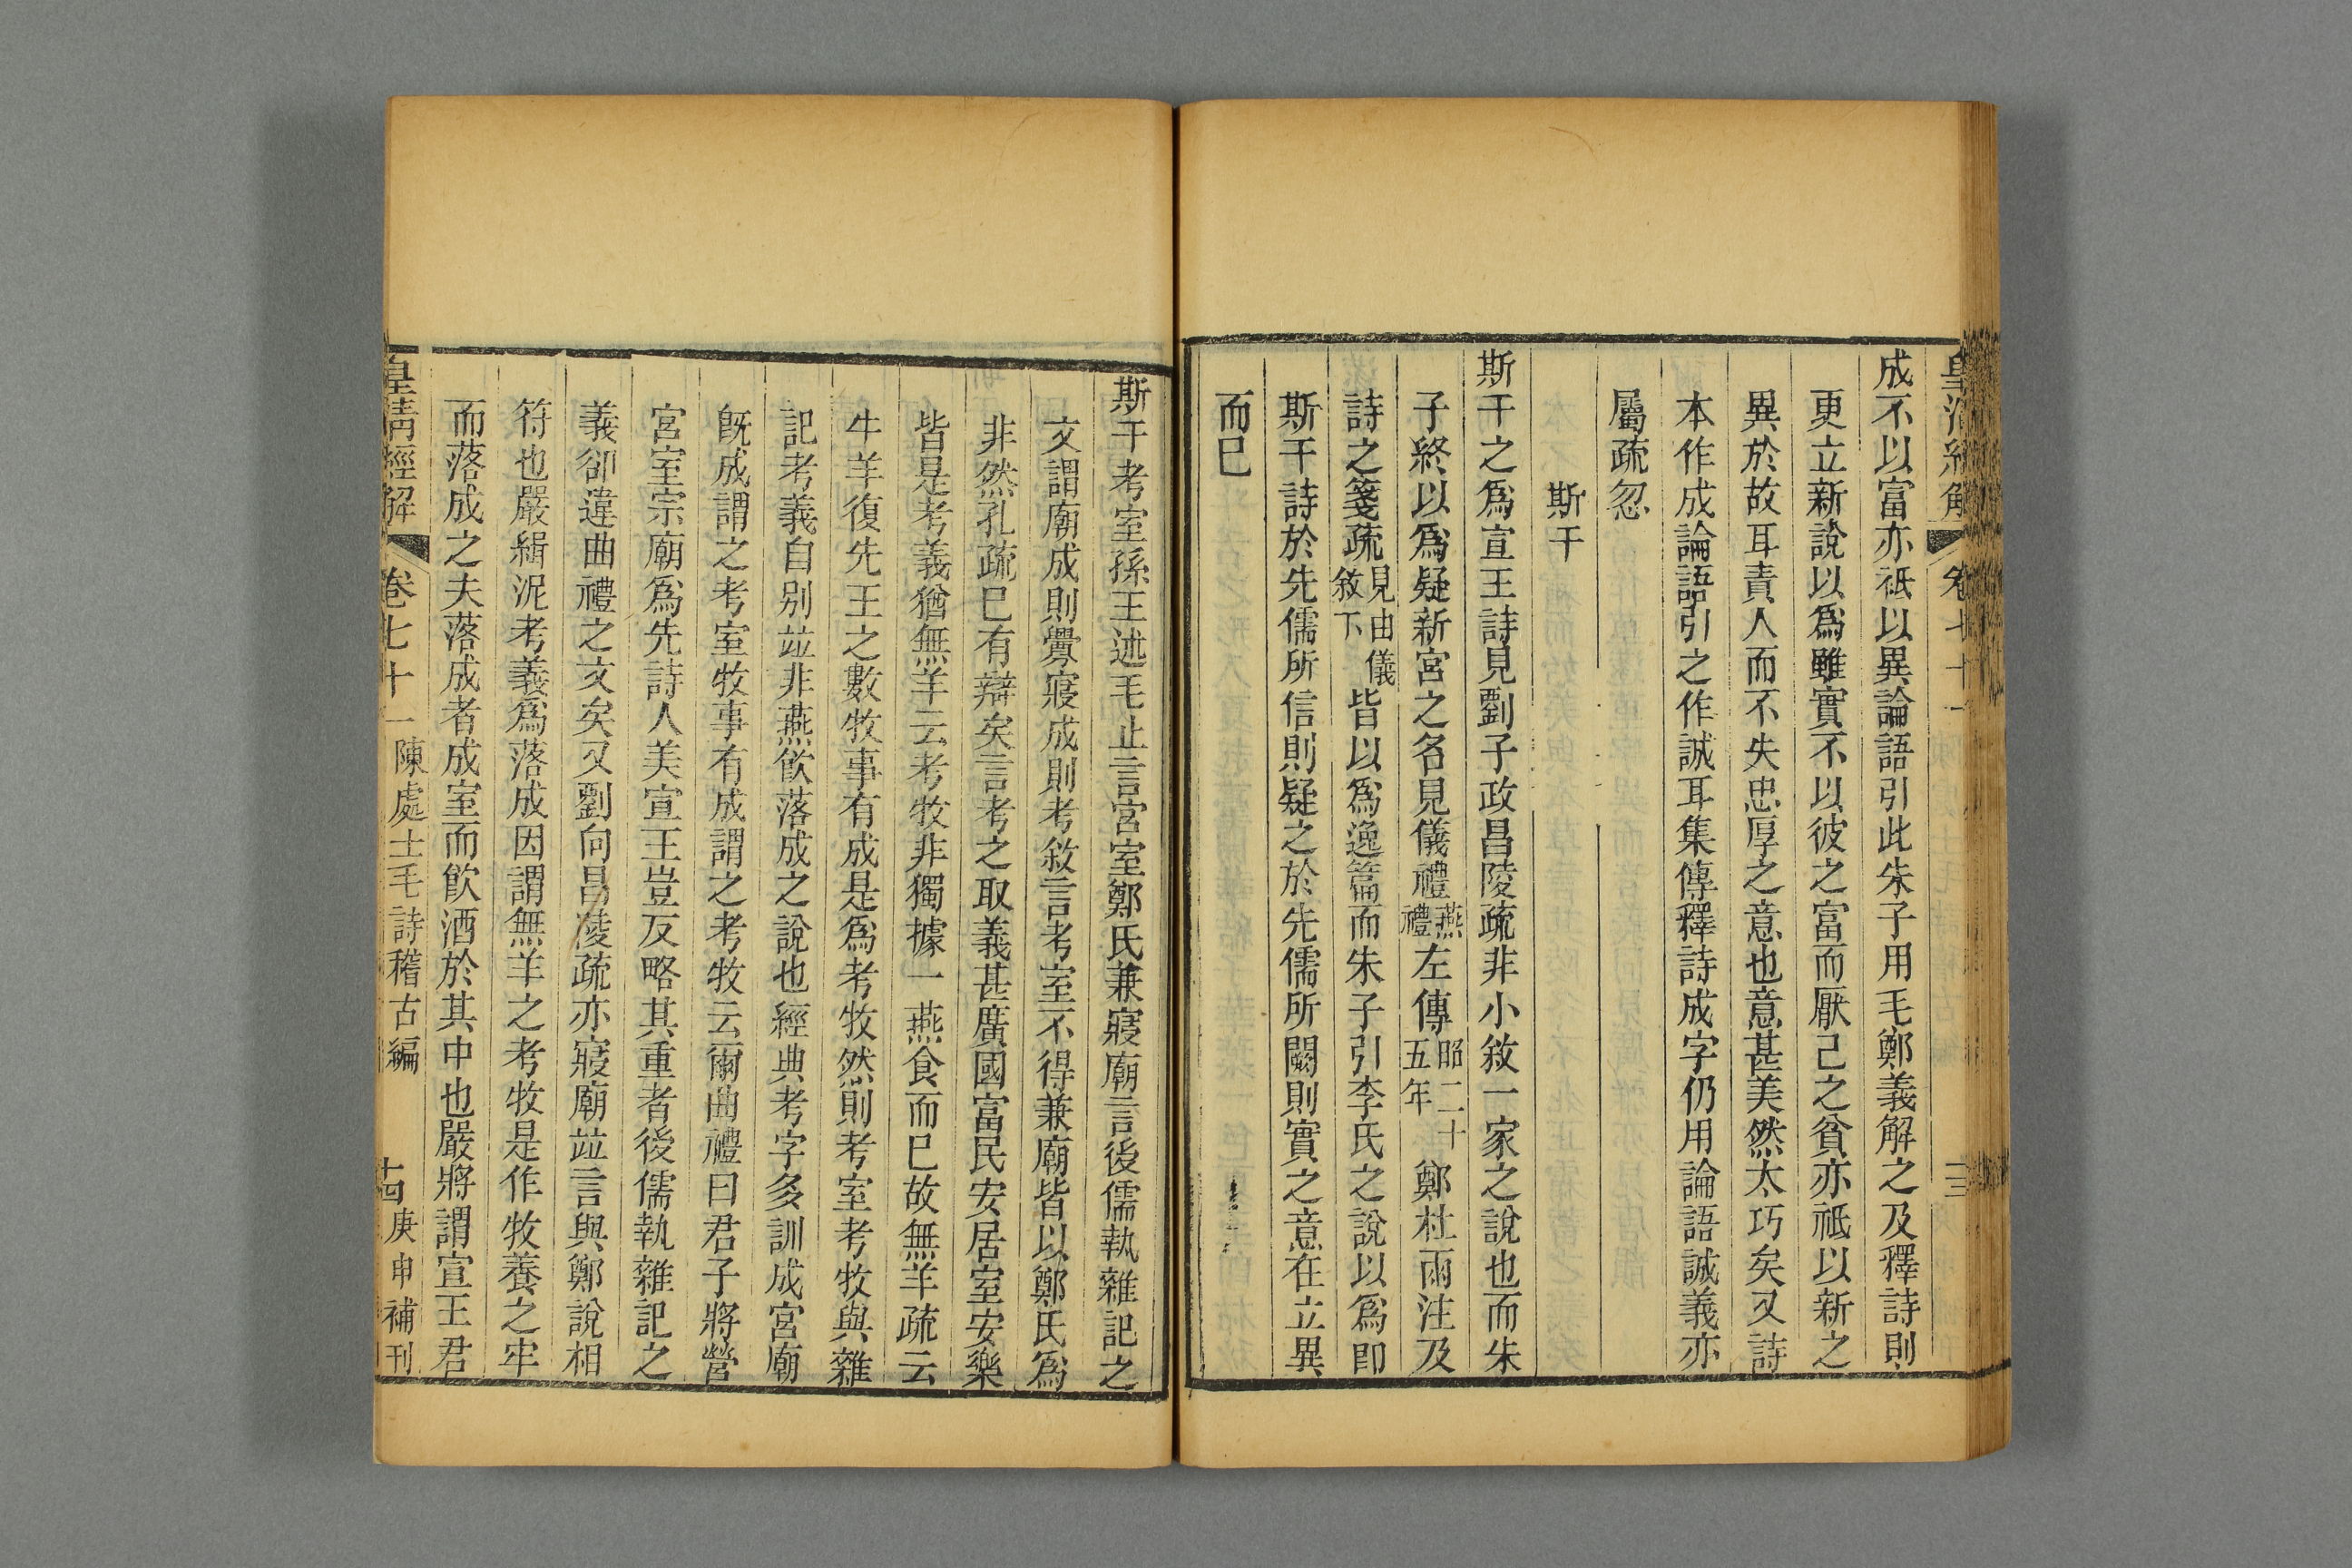 成不以富亦祇以異論語引此朱子用毛鄭義解之及釋詩則
更立新說以爲雖實不以彼之富而厭己之貧亦祇以新之
異於故耳責人而不失忠厚之意也意甚美然太巧矣又詩
本作成論語引之作誠耳集傳釋詩成字仍用論語誠義亦
屬疏忽
斯干
斯干之爲宣王詩見劉子政昌陵疏非小敘一家之說也而朱
子終以爲疑新宮之名見儀禮燕禮左傳昭二十五年鄭杜兩注及
詩之箋疏見由儀敘下皆以爲逸篇而朱子引李氏之說以爲即
斯干詩於先儒所信則疑之於先儒所闕則實之意在立異
而已
斯干考室孫王述毛止言宮室鄭氏兼寢廟言後儒執雜記之
文謂廟成則釁寢成則考敘言考室不得兼廟皆以鄭氏爲
非然孔疏已有辯矣言考之取義甚廣國富民安居室安樂
皆是考義猶無羊云考牧非獨據一燕食而已故無羊疏云
牛羊復先王之數牧事有成是爲考牧然則考室考牧與雜
記考義自別竝非燕飲落成之說也經典考字多訓成宮廟
既成謂之考室牧事有成謂之考牧云爾曲禮曰君子將營
宮室宗廟爲先詩人美宣王豈反略其重者後儒執雜記之
義卻違曲禮之文矣又劉向昌陵疏亦寢廟竝言與鄭說相
符也嚴緝泥考義爲落成因謂無羊之考牧是作牧養之牢
而落成之夫落成者成室而飲酒於其中也嚴將謂宣王君
皇清經解 卷七十一 陳處士毛詩稽古編 十四 庚申補刊